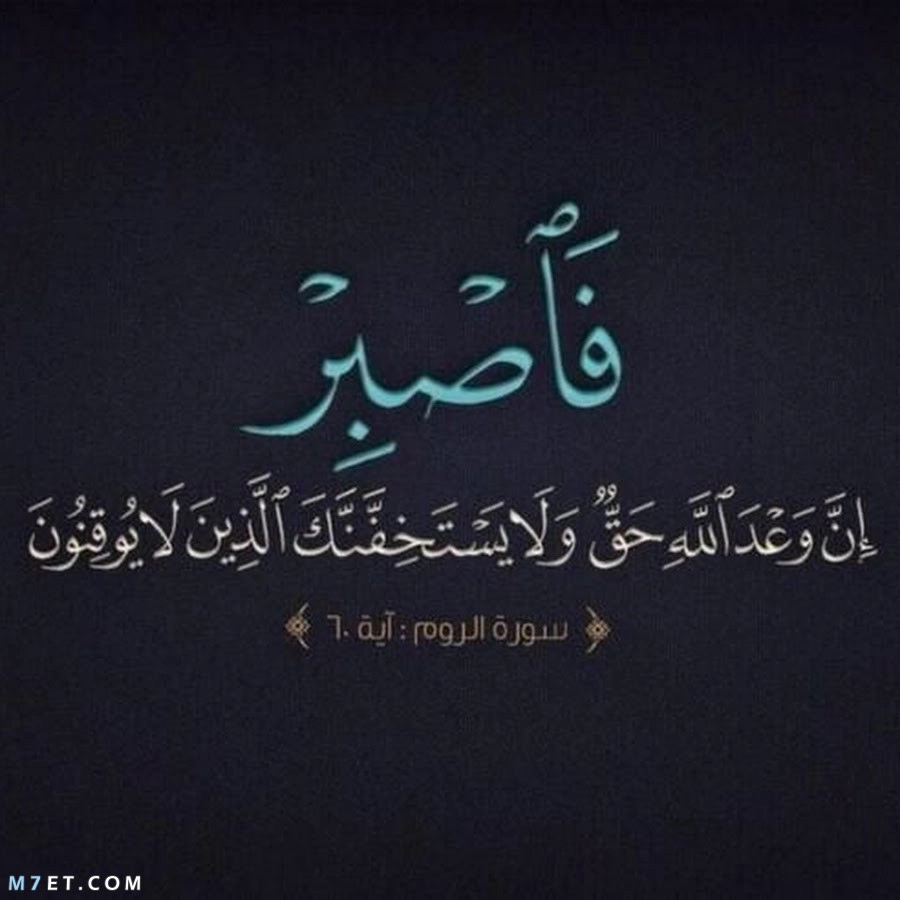 فَٱصْبِرْ
إِنَّ وَعْدَ ٱللَّهِ حَقٌّ وَلَا يَسْتَخِفَّنَّكَ ٱلَّذِينَ لَا يُوقِنُونَ
سورة الروم : آية ٦٠
M7ET.COM